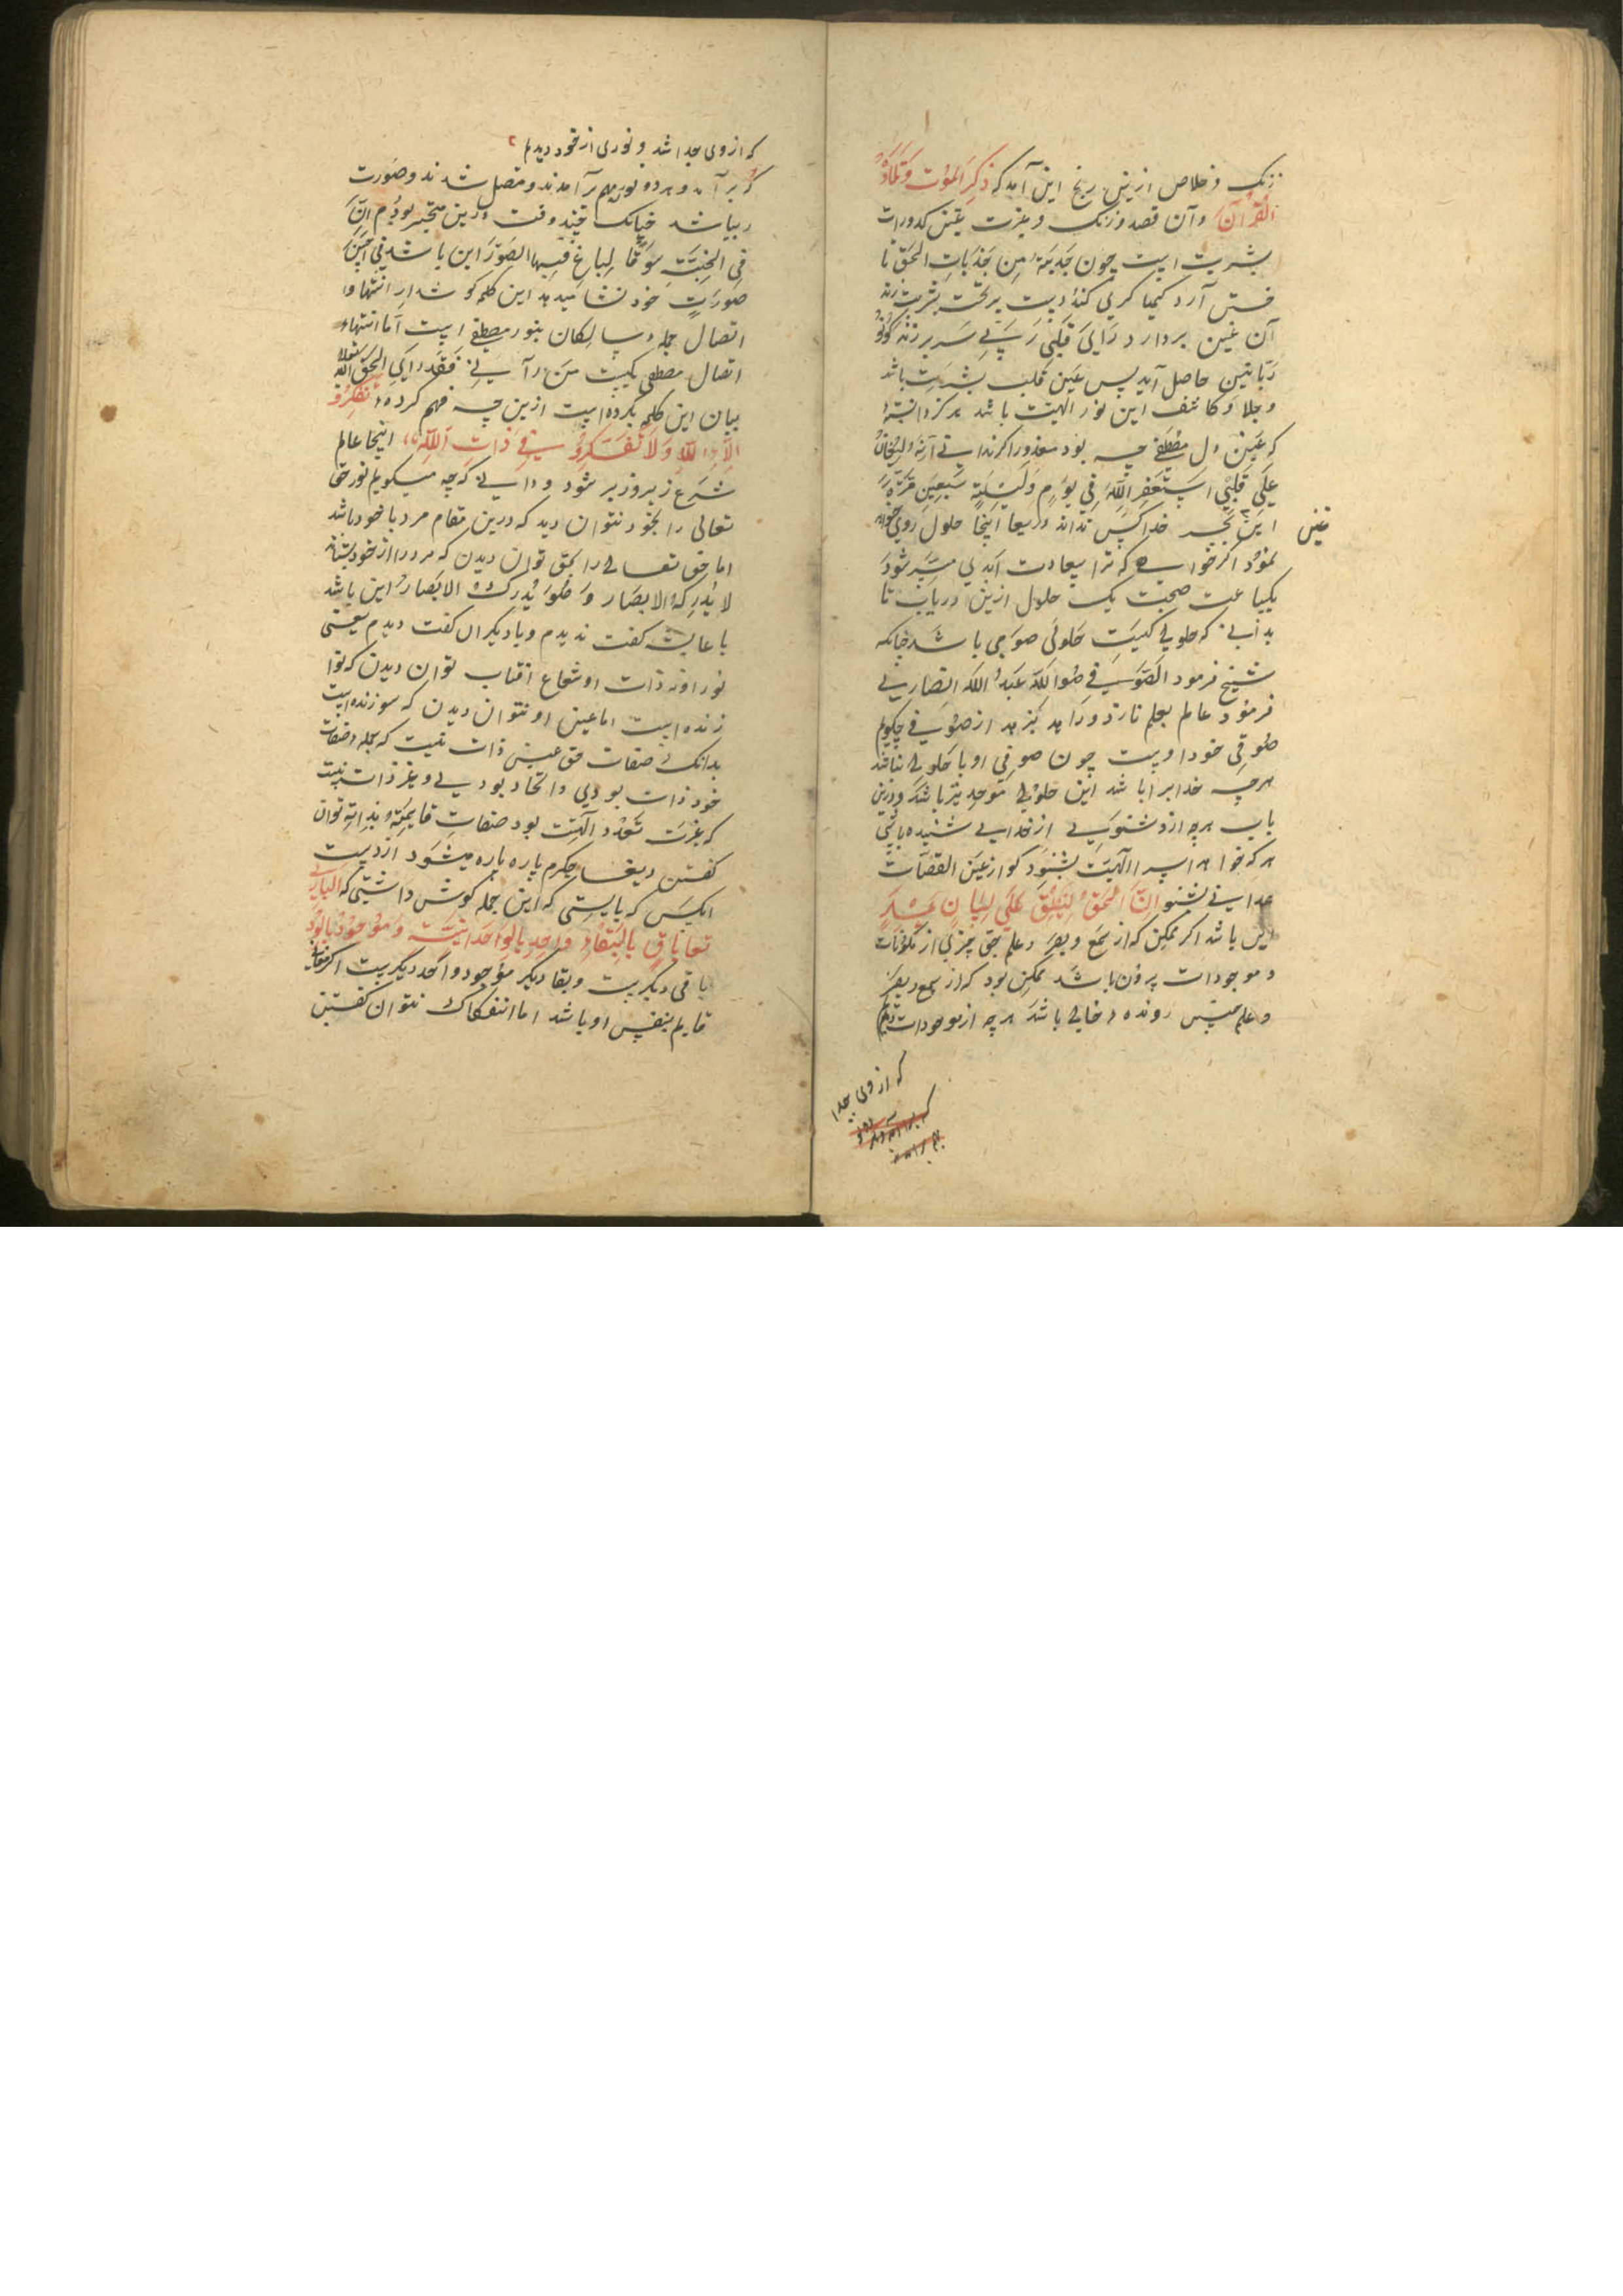 زنک و خلاص ازین رنج این آمد که ذِکرَ المَوْت وَتِلَاوَةُ
القُرْآن وآن قصد وزنک و غیرت غین کدورات
بشریت است چون جَذبَةٌ مِن جَذَبَاتِ الحَق تا
آن غین بردارد رَاَیَ قَلبی رَبّی سر بر زند کونوا
رَبّانیین حاصل آید پس غین قلب بشریت باشد
و جلا و کاشف این نور الهیّت باشد هرکز دانستهٔ
که غین دل مصطفی چه بود معذورا کر ندانی آنه لیغان
عَلَی قَلْبِی اَستغفر اللهَ فِی یَومٍ وَلَیْلَةٍ سَبعین مَرّةً
این بجز خدا کس نداند دریغا اینجا حلول روی خواهد
نمود اکر خواهی که ترا سعادت ابدی میسر شود
یکساعت صحبت یک حلولی ازین دریاب تا
بدانی که حلولی کیست حلولی صوفی باشد چنانکه
شیخ فرمود الصّوفی هُوَ اللّه عَبدُ الله انصاری
فرمود عالم بعلم نازد و زاهد بزهد از صوفی چکویم
صوفی خود اوست چون صوفی او باشد حلولی نباشد
هرچه خدایرا باشد این حلولی موحد نیز باشد و درین
باب هرچه ازو شنوی از خدای شنیده باشی
هرکه خواهد اسرار الهیت بشنود کو از عین القضات
همدانی بشنو اِنَّ الحَقَّ لَیَنطِقُ عَلَی لِسَانِ عُمَرَ
این باشد اکر ممکن که از سمع و بصر و علم حق چیزی از مکونات
و موجودات بیرون باشد ممکن بود که از سمع و بصر
و علم چنین رونده خالی باشد هرچه از موجودات
غین
که ازوی جدا
که ازوی جدا شد و نوری از خود دیدم
که برآمد و هر دو نور بهم برآمدند و متصل شدند و صورت
زیبا شد چنانک چند وقت درین متحیر بودم اِنّ
فِی الجَنَّةِ سُوقًا یُباعُ فیها الصُّوَر این باشد فی اَحسَن
صورت خود نشان میدهد این کلمه کو شدار انتها و
اتصال جمله سالکان بنور مصطفی است اَما انتهاء
اتصال مصطفی بکیست مَن رَآنی فَقَد رَاَی الحَق
بیان این کلمه بکرده است ازین چه فهم کردهٔ تَفَکَّرُوا
اِلآءِ الله وَلاَ تَفَکَّرُوا فِی ذَاتِ اَللهِ اینجا عالم
شرع زیر و زبر شود و دانی که چه میکویم نور حق
تعالی را بخود نتوان دید که درین مقام مرد با خود باشد
اما حق تعالی را بحق توان دیدن که مرد را از خود بستاند
لا تُدرِکُهُ الابصَار وَهُوَ یُدرِکُ الابصَارُ این باشد
با عایشه کفت ندیدم و با دیکران کفت دیدم یعنی
نور او نه ذات او شعاع افتاب توان دیدن که نوا
زنده است اما عین او نتوان دیدن که سوزنده است
بدانک صفات حق عین ذات نیست که جمله صفات
خود ذات بودی و اتحاد بودی و غیر ذات نیست
که غیریت تعدد الهیّت بود صفات قایمة بذاته توان
کفتن دریغا جکرم پاره پاره میشود از دست
آنکس که بایستی که این جمله کوش داشتی که الباری
تعا باقٍ بِالبَقَاءِ واحِدٌ بِالوَاحدَانِیَّة وَمَوجُودٌ بِالوُجُود
باقی دیکریست و بقا دیکر موجود و احد دیکریست
قایم بنفس او باشد اما انفکاک نتوان کفتن